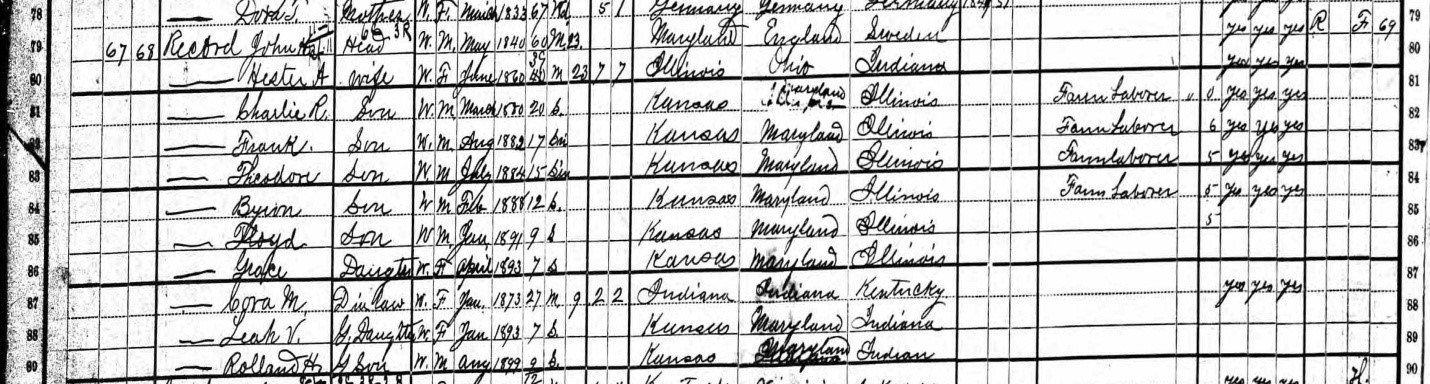 78 Mother W. F. March 1833 67 Wd 5 1 Germany Germany Germany 79
79 67 68 Record John Head W. M. May 1840 60 M 23 Maryland England Sweden yes yes yes R F 69 80
80 — Hester A wife W. F June 1860 39 M 23 7 7 Illinois Ohio Indiana yes yes yes 81
81 — Charlie R. Son W M March 1880 20 S. Kansas Maryland Illinois Farm Laborer " 0 yes yes yes 82
82 — Frank. Son W. M. Aug 1882 17 Sin Kansas Maryland Illinois Farm Laborer 6 yes yes yes 83
83 — Theodore Son W M July 1884 15 Sin Kansas Maryland Illinois Farm laborer 5 yes yes yes 84
84 — Byron Son W M Feb 1888 12 S. Kansas Maryland Illinois Farm Laborer 5 yes yes yes 85
85 — Floyd Son W M Jan 1891 9 S Kansas Maryland Illinois 5 86
86 — Grace Daughter W. F April 1893 7 S Kansas Maryland Illinois 87
87 — Cora M. D in law W. F Jan. 1873 27 M 9 2 2 Indiana Indiana Kentucky yes yes yes 88
88 — Leah V. G. Daughter W. F Jan 1893 7 S. Kansas Maryland Indiana 89
89 — Rolland H. G Son W. M Aug 1899 S. Kansas Maryland Indian 90